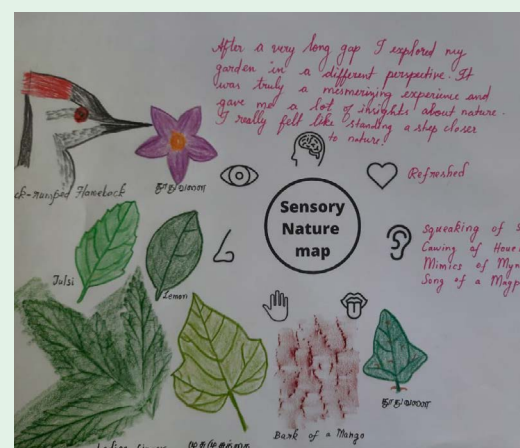 After a very long gap I explored my
garden in a different perspective. It
was truly a mesmerizing experience and
gave me a lot of insights about nature.
I really felt like standing a step closer
to nature
Refreshed
ck-rumped Flameback
தூதுவளை
Sensory
Nature
map
Squeaking of
Cawing of
Mimics of
Song of a
Tulsi
Lemon
Bark of a Mango
தூதுவளை